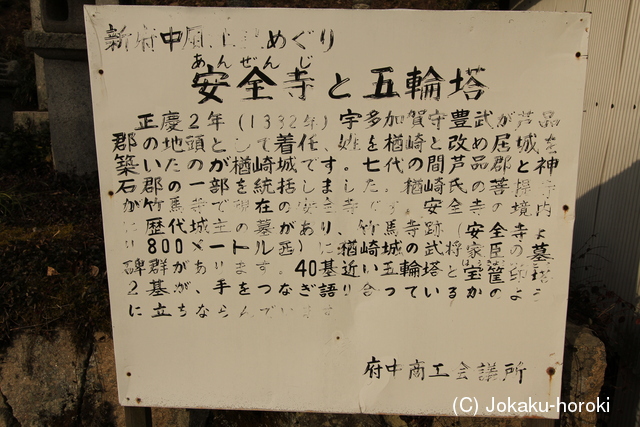 新府中風土記めぐり
あんぜんじ
安全寺と五輪塔
正慶2年(1332年)宇多加賀守豊武が芦品
郡の地頭として着任、姓を楢崎と改め居城を
築いたのが楢崎城です。七代の間芦品郡と神
石郡の一部を統括しました。楢崎氏の菩提寺
が竹馬寺で現在の安全寺です。安全寺の境内
に歴代城主の墓があり、竹馬寺跡(安全寺よ
り800メートル西)に楢崎城の武将家臣の墓
碑群があります。40基近い五輪塔と宝篋印塔
2基が、手をつなぎ語り合っているかのよう
に立ちならんでいます
府中商工会議所
(C) Jokaku-horoki